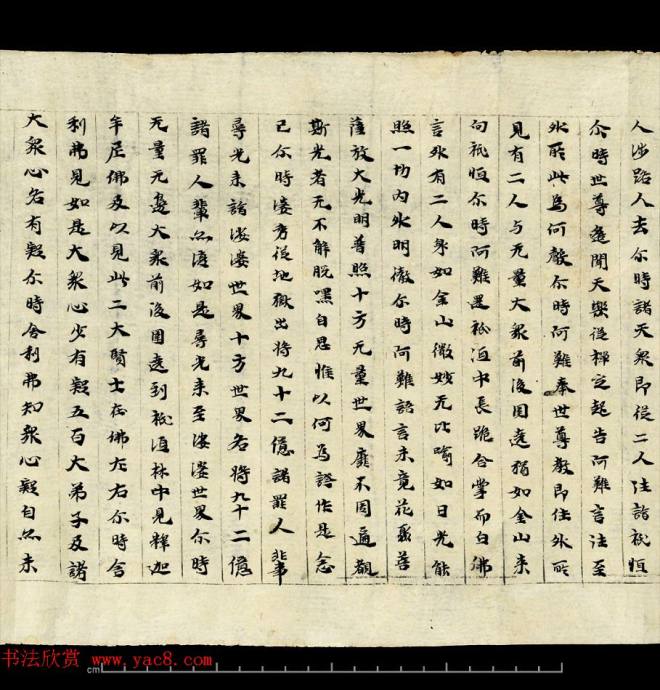 人涉路人去尒時諸天衆即從二人往詣祇恒
尒時世尊遥聞天樂從禪定起告阿難言汝至
外所此為何聲尒時阿難奉世尊教即往外所
見有二人与无量大衆前後圍遶猶如金山来
向祇恒尒時阿難還祇洹中長跪合掌而白佛
言外有二人身如金山微妙无比喻如日光能
照一切内外明徹尒時阿難語言未竟花聚菩
薩放大光明普照十方无量世界靡不周遍覩
斯光者无不解脫嘿自思惟以何為證作是念
已尒時婆藪從地獄出将九十二億諸罪人輩
尋光来詣娑婆世界十方世界各将九十二億
諸罪人輩亦復如是尋光来至娑婆世界尒時
无量无邊大衆前後圍遶到祇洹林中見釋迦
牟尼佛及以見此二大賢士在佛左右尒時舍
利弗見如是大衆心少有疑五百大弟子及諸
大衆心各有疑尒時舍利弗知衆心疑自亦未
书法欣赏 www.yac8.com
cm